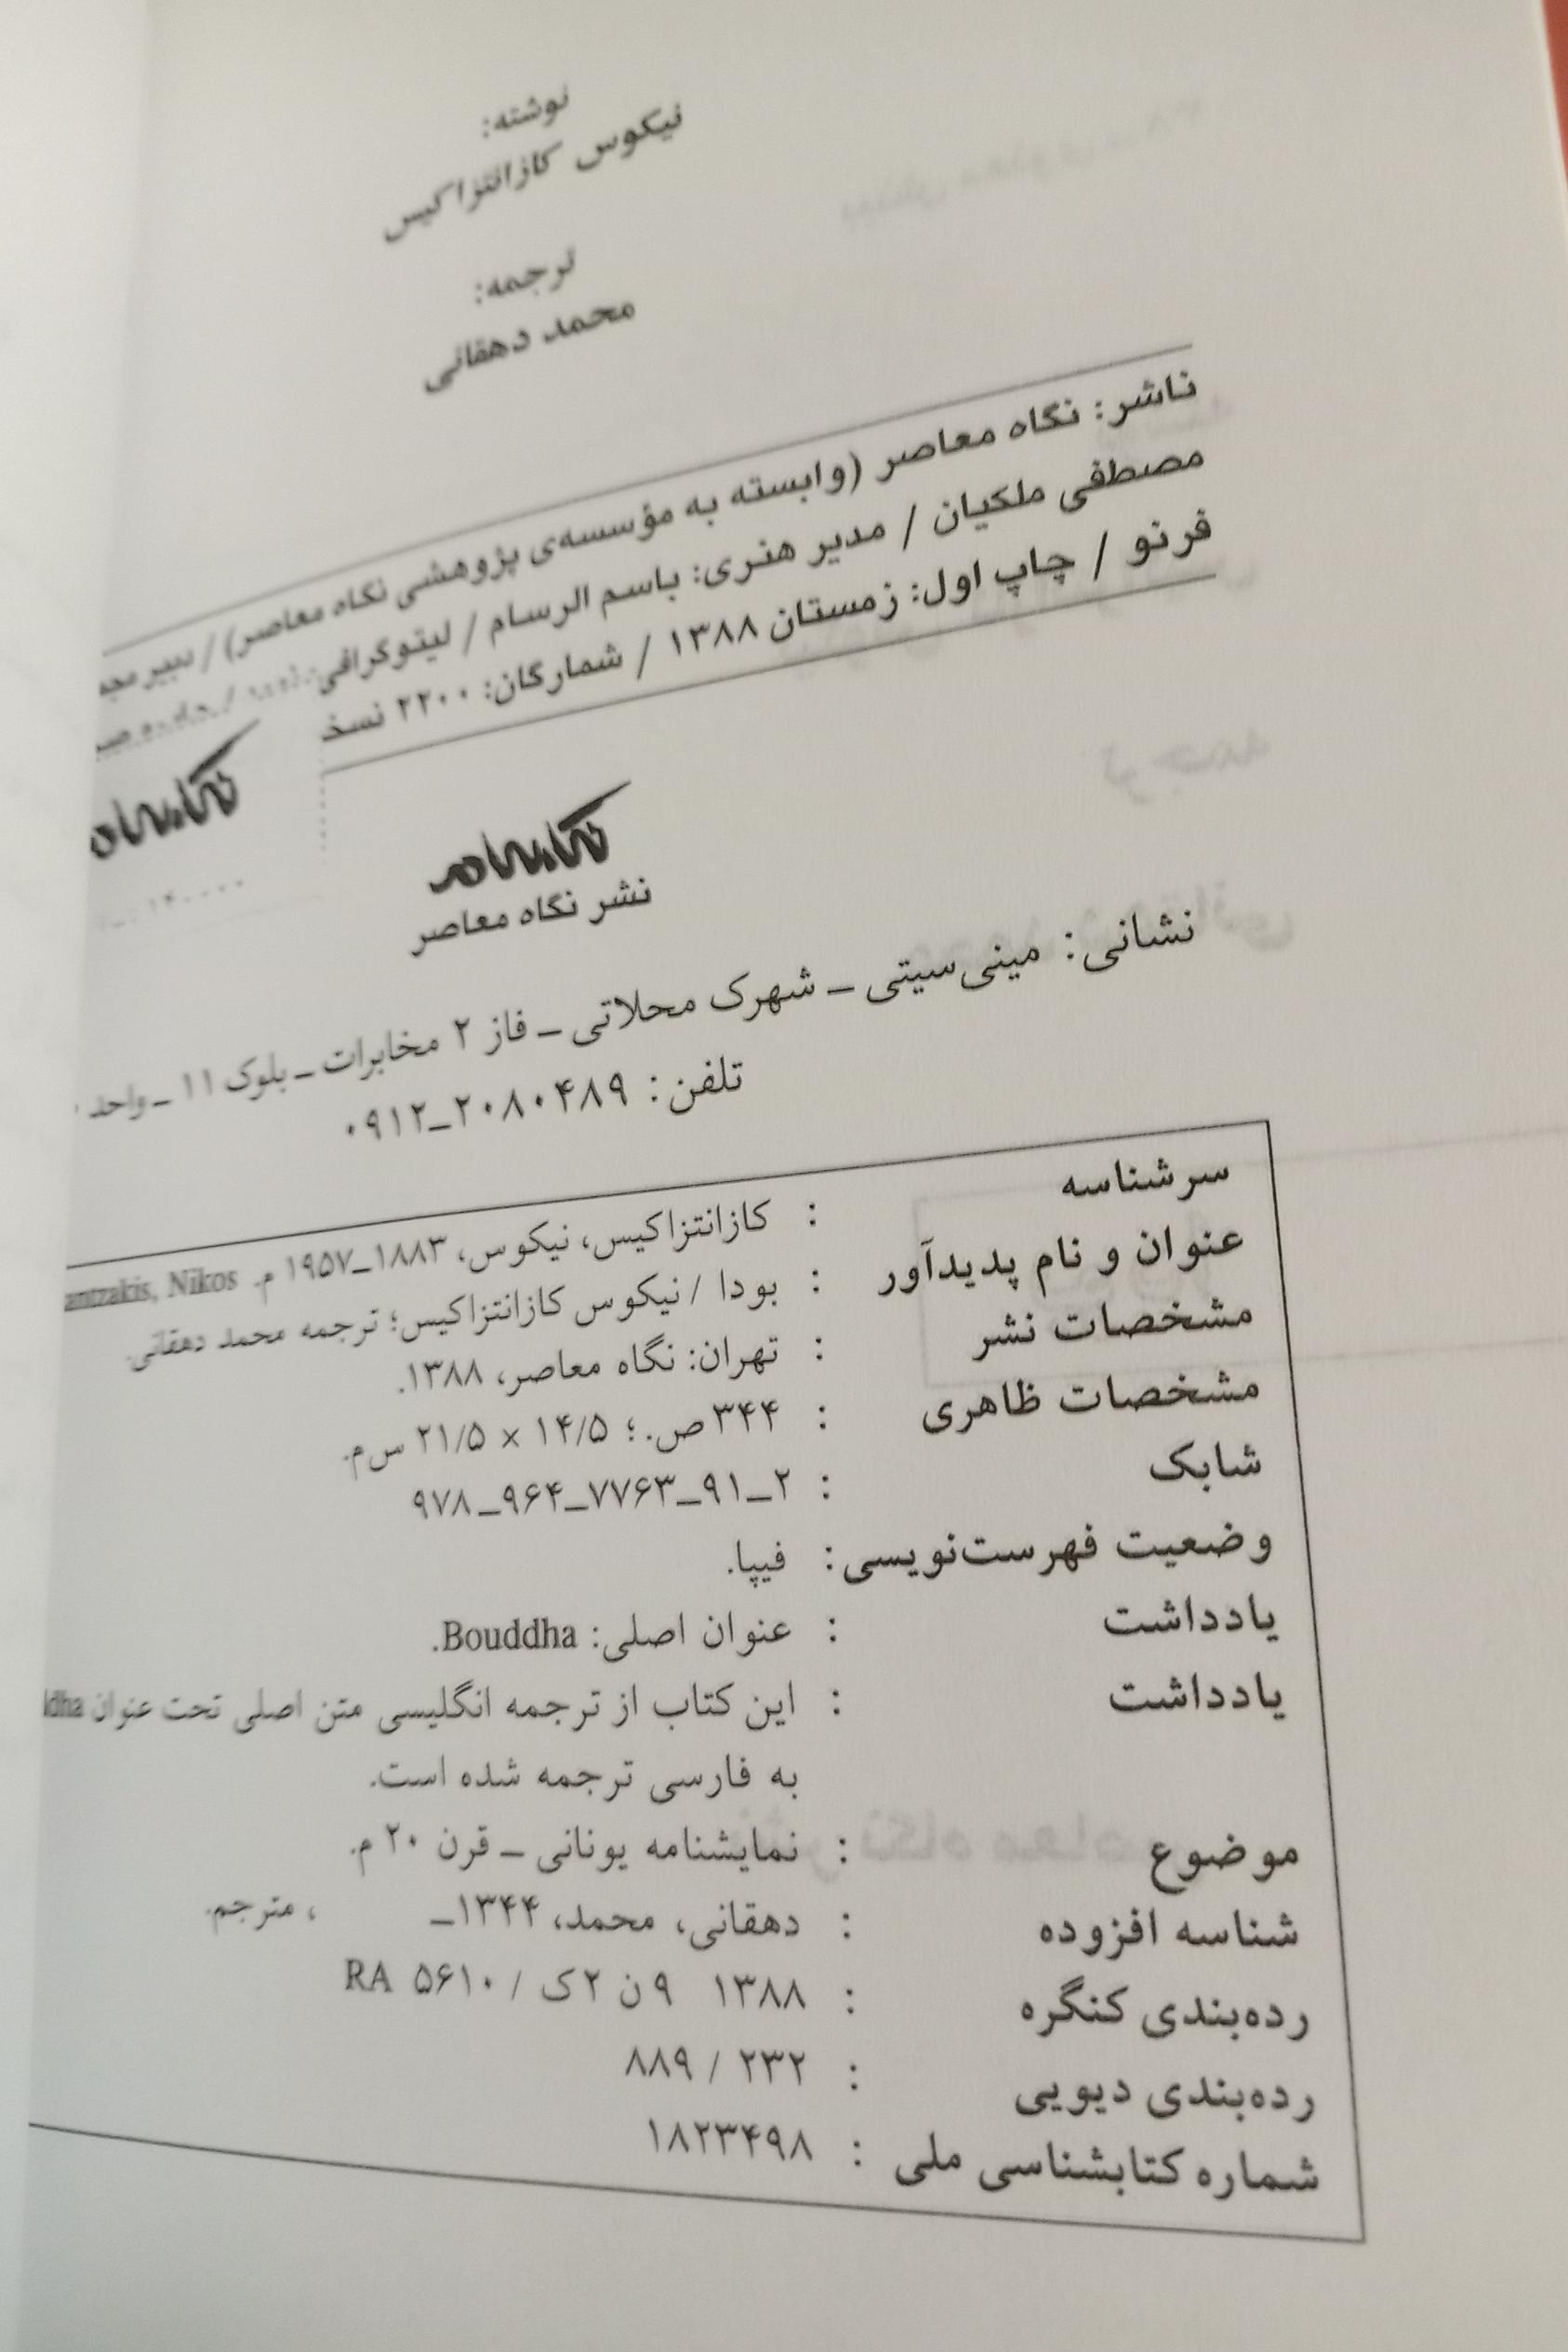 نوشته:
نیکوس کازانتزاکیس
ترجمه:
محمد دهقانی
ناشر: نگاه معاصر (وابسته به مؤسسه‌ی پژوهشی نگاه معاصر) /
مصطفی ملکیان / مدیر هنری: باسم الرسام / لیتوگرافی
فرنو / چاپ اول: زمستان ۱۳۸۸ / شمارگان: ۲۲۰۰ نسخ
نشر نگاه معاصر
نشانی: مینی‌سیتی ـ شهرک محلاتی ـ فاز ۲ مخابرات ـ بلوک ۱۱ ـ واحد
تلفن: ۲۰۸۰۴۸۹ـ۰۹۱۲
سرشناسه : کازانتزاکیس، نیکوس، ۱۸۸۳ـ۱۹۵۷ م. antzakis, Nikos
عنوان و نام پدیدآور : بودا / نیکوس کازانتزاکیس؛ ترجمه محمد دهقانی.
مشخصات نشر : تهران: نگاه معاصر، ۱۳۸۸.
مشخصات ظاهری : ۳۴۴ ص.؛ ۱۴/۵ × ۲۱/۵ س‌م.
شابک : ۲ـ۹۱ـ۷۷۶۳ـ۹۶۴ـ۹۷۸
وضعیت فهرست‌نویسی : فیپا.
یادداشت : عنوان اصلی: Bouddha.
یادداشت : این کتاب از ترجمه انگلیسی متن اصلی تحت عنوان ddha
به فارسی ترجمه شده است.
موضوع : نمایشنامه یونانی ـ قرن ۲۰ م.
شناسه افزوده : دهقانی، محمد، ۱۳۴۴ـ ، مترجم.
رده‌بندی کنگره : ۱۳۸۸ ۹ن ۲ک / ۵۶۱۰ RA
رده‌بندی دیویی : ۲۳۲ / ۸۸۹
شماره کتابشناسی ملی : ۱۸۲۳۴۹۸